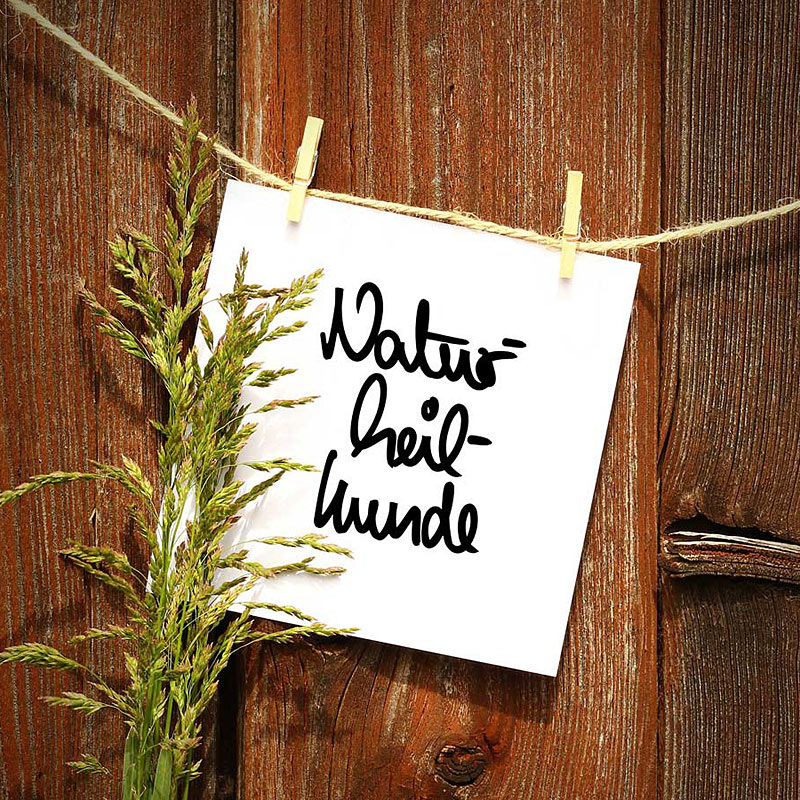 Natur-
heil-
kunde